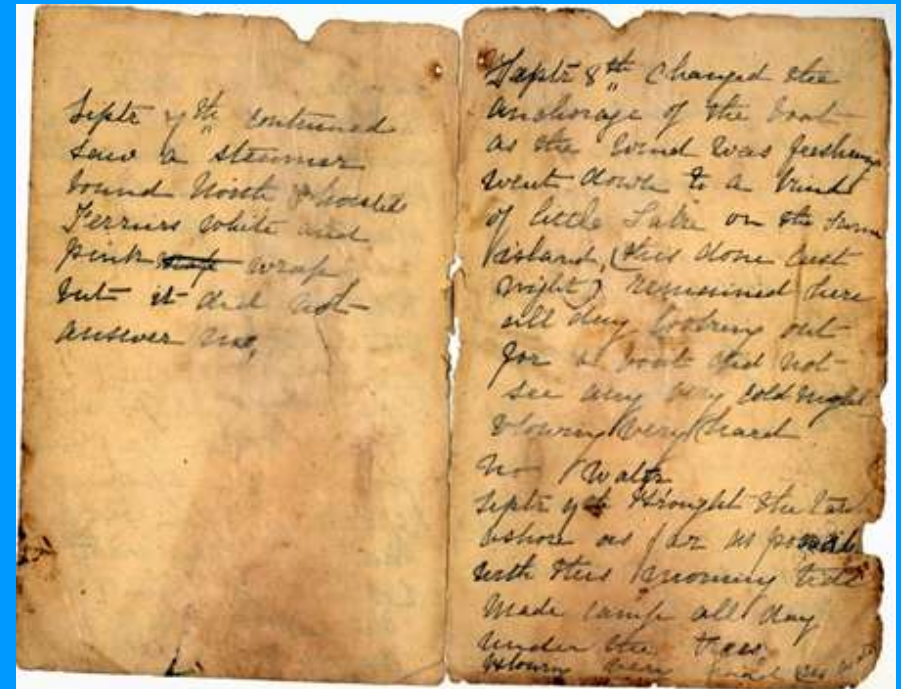 Septr 7th continued
saw a steamer
bound North & hoisted
Ferriers white and
pink wrap wrap
but it did not
answer me,
Septr 8th Changed the
anchorage of the boat
as the wind was freshening
went down to a kind
of little Lake on the same
island, (this done last
night) remained here
all day looking out
for a boat did not
see any very cold night
blowing very hard
No Water
Septr 9th brought the tank
ashore as far as possible
with this morning tide
Made camp all day
under the trees
blowing very hard